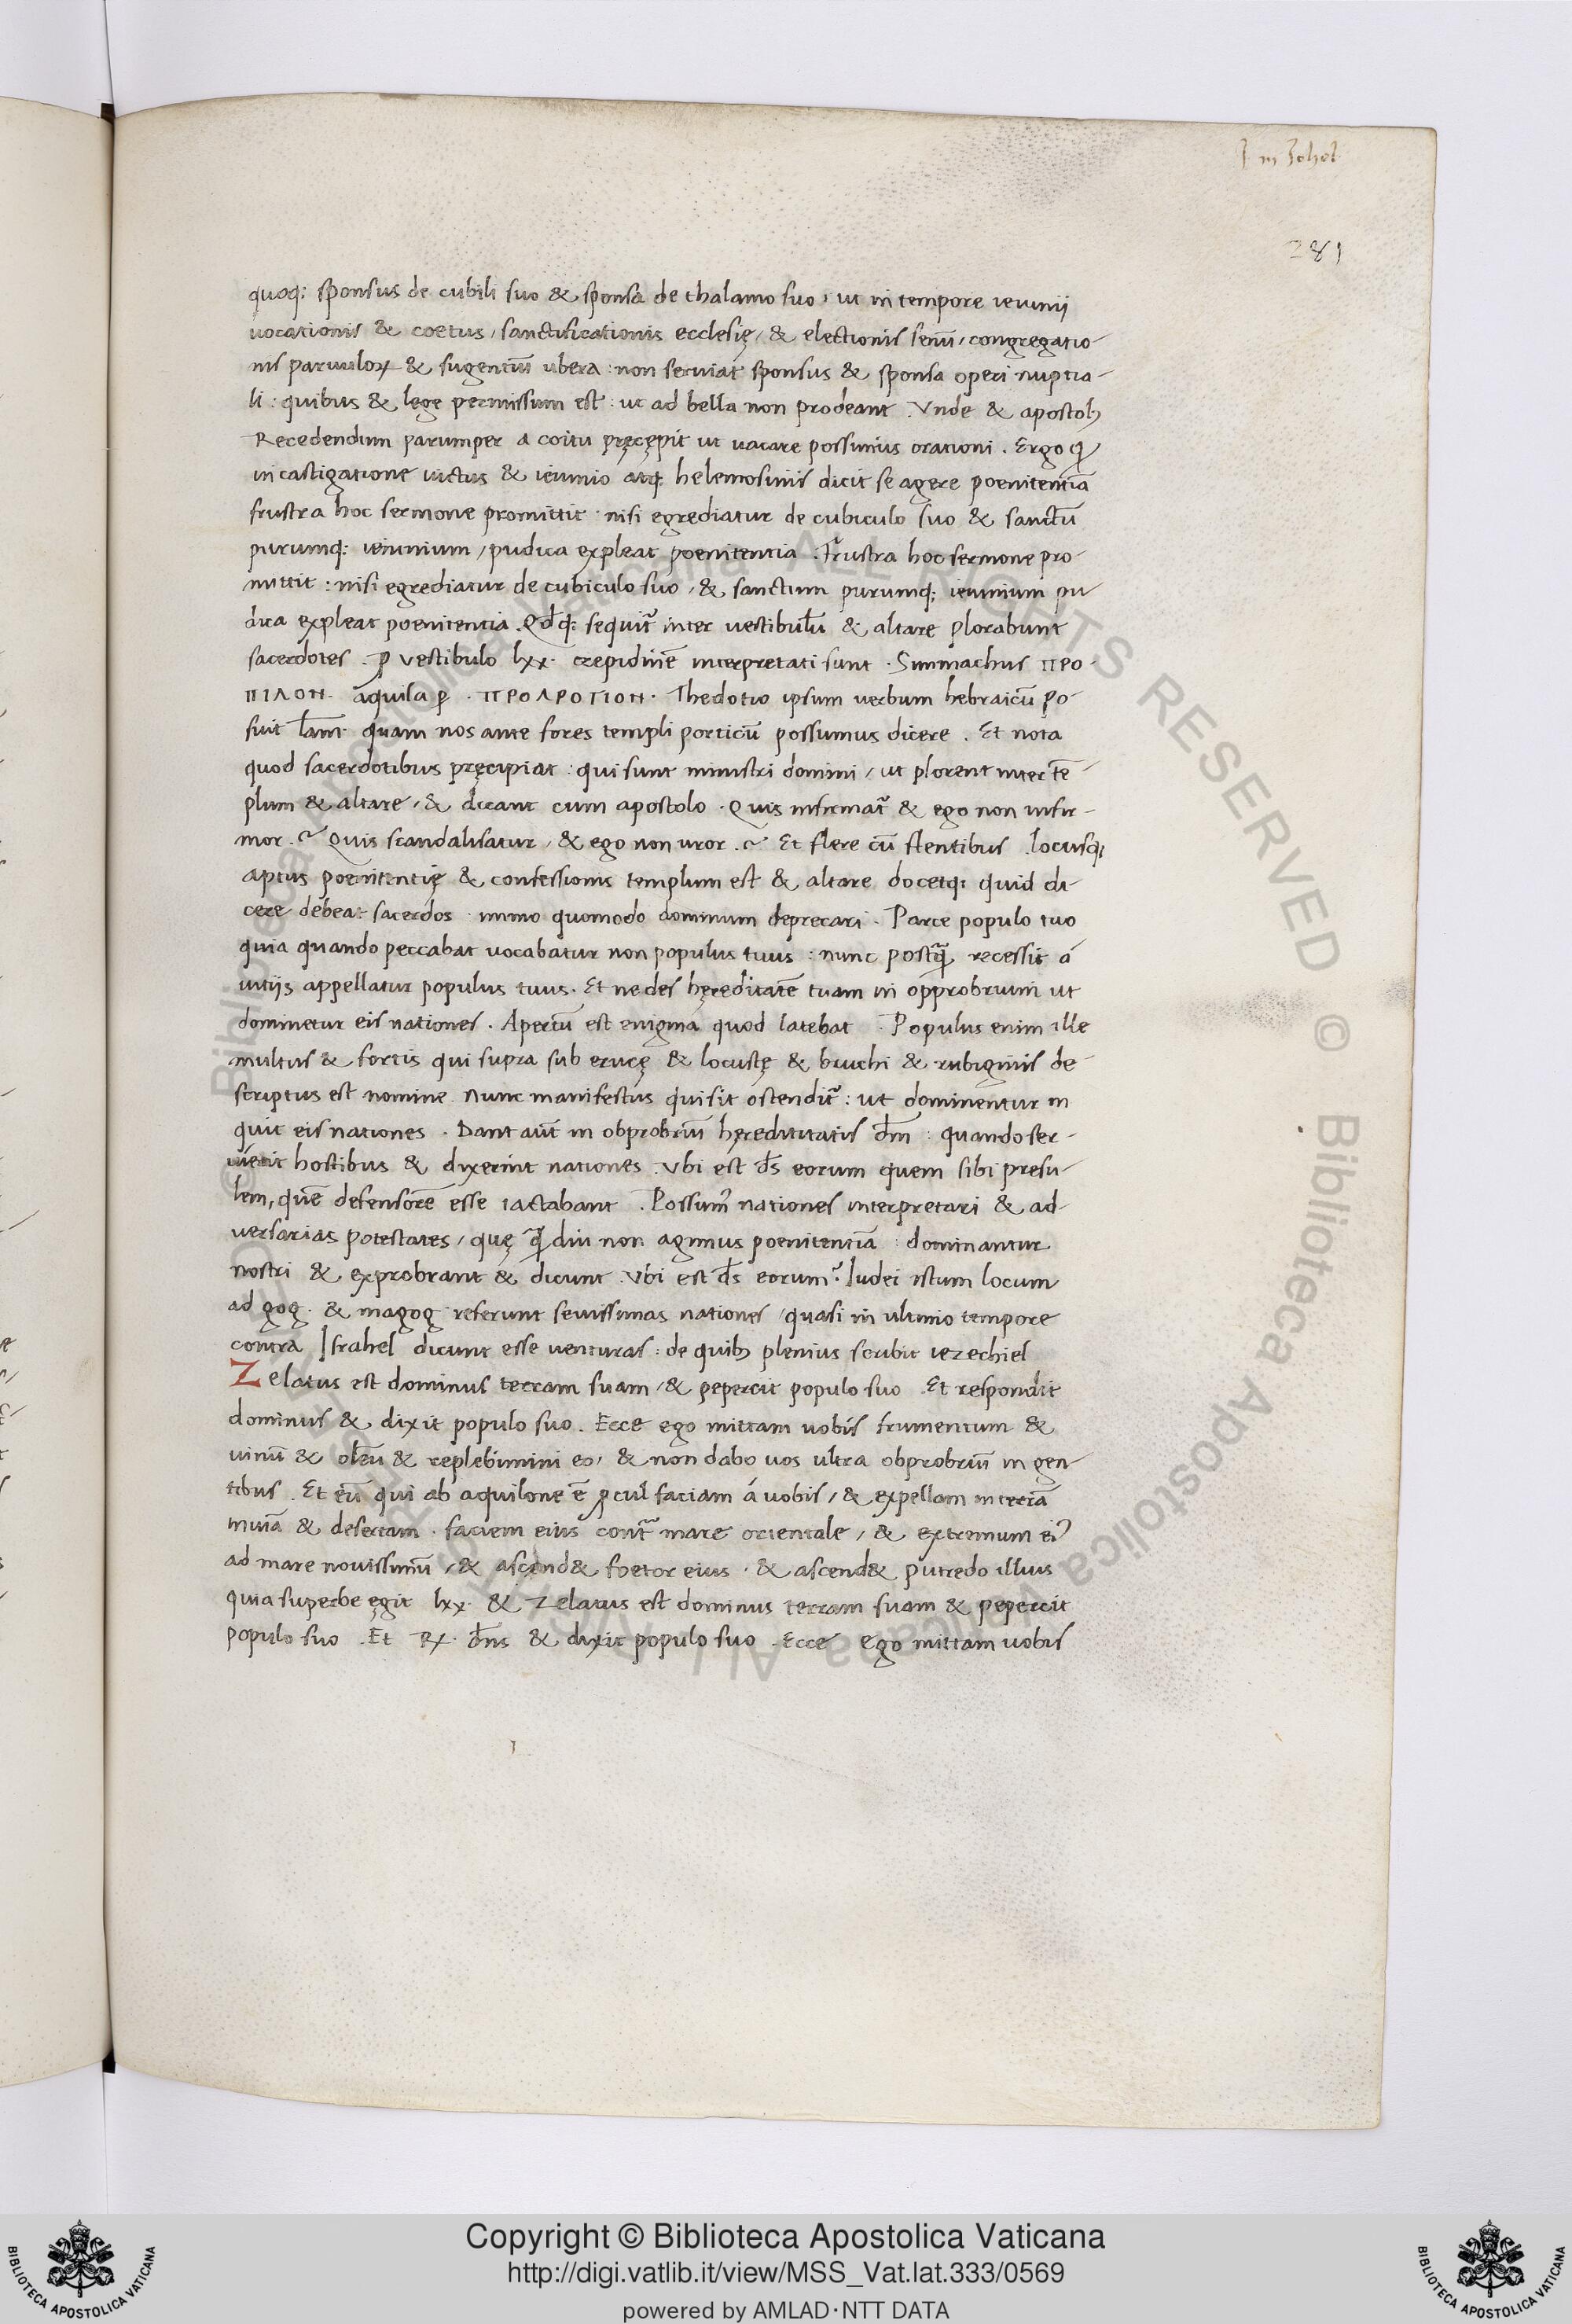 J in Johel
281
quoq; sponsus de cubili suo & sponsa de thalamo suo, ut in tempore ieiunij
uocationis & coetus, sanctificationis ecclesię, & electionis senū, congregatio-
nis paruuloꝝ & sugentiū ubera : non seruiat sponsus & sponsa operi nuptia-
li : quibus & lege permissum est : ut ad bella non prodeant . Vnde & apostolꝰ
Recedendum parumper a coitu pręcępit ut uacare possimus orationi . Ergo ꝙ
in castigatione uictus & ieiunio atq; helemosinis dicit se agere poenitentiā
frustra hoc sermone promittit . nisi egrediatur de cubiculo suo & sanctū
purumq; ieiunium, pudica expleat poenitentia . Frustra hoc sermone pro-
mittit : nisi egrediatur de cubiculo suo, & sanctum purumq; ieiunium pu-
dica expleat poenitentia . Qd̄q; sequit̃ inter uestibulū & altare plorabunt
sacerdotes . ꝓ vestibulo lxx. crepidinē interpretati sunt . Simmachus ΠΡΟ-
ΠΙΛΟΝ. aquila ꝓ . ΠΡΟΔΡΟΤΙΟΝ . Thedotio ipsum uerbum hebraicū po-
suit l̄am. quam nos ante fores templi porticū possumus dicere . Et nota
quod sacerdotibus pręcipiat : qui sunt ministri domini, ut plorent inter tē-
plum & altare, & dicant cum apostolo . Quis infirmat̃ & ego non infir-
mor . ? Quis scandalisatur, & ego non uror . ? Et flere cū flentibus . locusq;
aptus poenitentię & confessionis templum est & altare docetq; quid di-
cere debeat sacerdos . immo quomodo dominum deprecari . Parce populo tuo
quia quando peccabat uocabatur non populus tuus : nunc postꝗ̃ recessit á
uitijs appellatur populus tuus . Et ne des hęreditatē tuam in opprobrium ut
dominetur eis nationes . Apertū est enigma quod latebat . Populus enim ille
multus & fortis qui supra sub erucę & locustę & bruchi & rubiginis de-
scriptus est nomine . nunc manifestus qui sit ostendit̃ : ut dominentur in
quit eis nationes . Dant aūt in obprobriū hęredititatis dm̄ : quando ser-
uierit hostibus & dixerint nationes . Vbi est ds̄ eorum quem sibi presu-
lem, quē defensorē esse iactabant . Possum̃ nationes interpretari & ad-
uersarias potestates, quę ꝗ̃ diu non agimus poenitentiā : dominantur
nostri & exprobrant & dicunt . Vbi est ds̄ eorum ? Iudei istum locum
ad gog . & magog referunt seuissimas nationes, quasi in ultimo tempore
contra Israhel dicunt esse uenturas : de quibꝫ plenius scribit iezechiel
Zelatus est dominus terram suam, & pepercit populo suo . Et respondit
dominus & dixit populo suo . Ecce ego mittam uobis frumentum &
uinū & oleū & replebimini eo, & non dabo uos ultra obprobriū in gen-
tibus . Et eū qui ab aquilone ē ꝓcul faciam á uobis, & expellam in terrā
inuiā & desertam . faciem eius contr̃ mare orientale, & extremum eiꝰ
ad mare nouissimū, & ascend& foetor eius . & ascend& putredo illius
quia superbe ęgit lxx. & Zelatus est dominus terram suam & pepercit
populo suo . Et ℞. dn̄s & dixit populo suo . Ecce ego mittam uobis
Copyright © Biblioteca Apostolica Vaticana
http://digi.vatlib.it/view/MSS_Vat.lat.333/0569
powered by AMLAD·NTT DATA